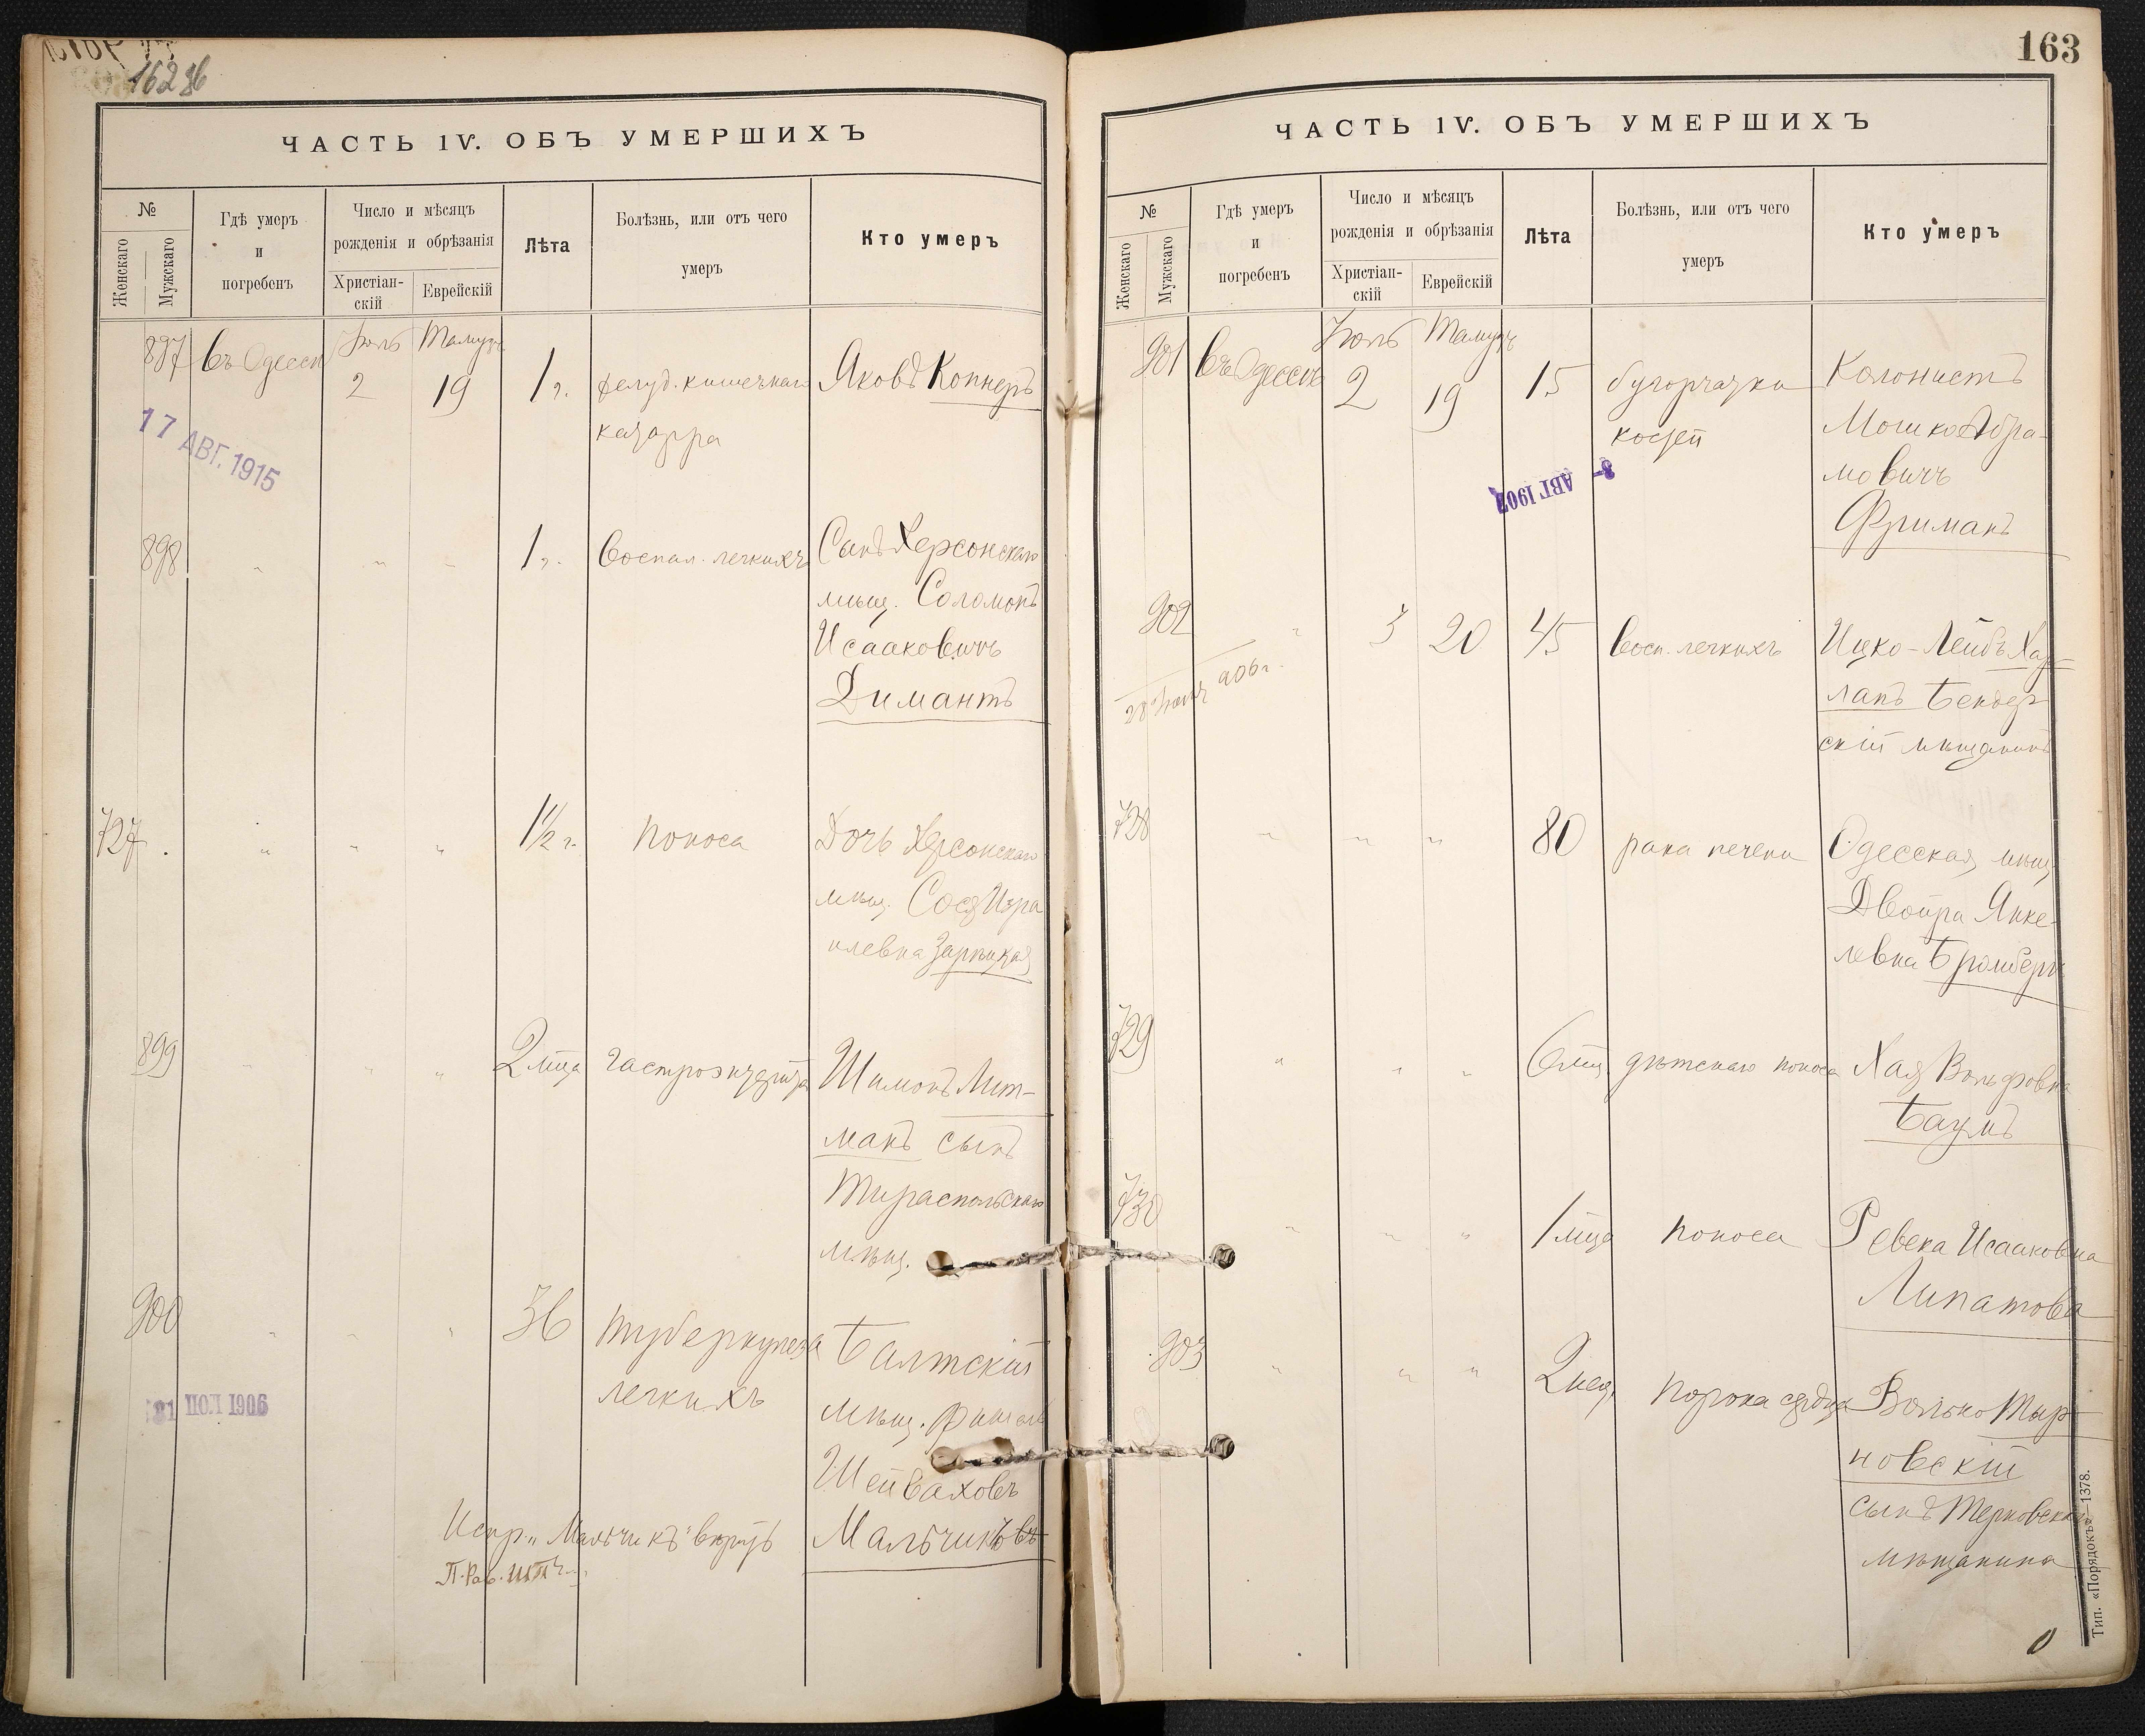 162 об
ЧАСТЬ IV. ОБЪ УМЕРШИХЪ
№
Женскаго
Мужскаго
Гдѣ умеръ
и
погребенъ
Число и мѣсяцъ
рожденія и обрѣзанія
Христіан-
скій
Еврейскій
Лѣта
Болѣзнь, или отъ чего
умеръ
Кто умеръ
897 въ Одессѣ Іюль 2 Тамузъ 19 1 г. желуд. кишечнаго Яковъ Копнеръ
катарра
17 АВГ. 1915
898 " " " 1 г. воспал. легкихъ Сынъ Херсонскаго
мѣщ. Соломонъ
Исааковичъ
Димантъ
727. " " " 1½ г. поноса Дочь Херсонскаго
мѣщ. Сося Изра
илевна Зарицкая
899 " " " 2 мца гастроэнтерита Шимонъ Лит-
манъ сынъ
Тираспольскаго
мѣщ.
900 " " " 36 туберкулеза Балтскій
легкихъ мѣщ. Фишель
31 ІЮЛ 1906
Шейваховъ
Мальчикъ въ
Испр. "Мальчикъ" вѣрить
П. Рав.
163
ЧАСТЬ IV. ОБЪ УМЕРШИХЪ
№
Женскаго
Мужскаго
Гдѣ умеръ
и
погребенъ
Число и мѣсяцъ
рожденія и обрѣзанія
Христіан-
скій
Еврейскій
Лѣта
Болѣзнь, или отъ чего
умеръ
Кто умеръ
901 въ Одессѣ Іюль 2 Тамузъ 19 15 бугорчатки Колонистъ
костей Мошко Абра-
мовичъ
Фриманъ
8- АВГ 1907
902 " 3 20 45 восп. легкихъ Ицко-Лейбъ Кап-
ланъ Бендер
скій мѣщанинъ
28 906 г.
728 " " " 80 рака печени Одесская мѣщ.
Двойра Янке-
левна Бромбергъ
729 " " " 6 мц. дѣтскаго поноса Хая Вольфовна
Баумъ
730 " " " 1 мца поноса Ревека Исааковна
Липатова
903 " " " 2 нед. порока сердца Волько Тыр-
новскій
сынъ
мѣщанина
Тип. «Порядокъ»—1378.